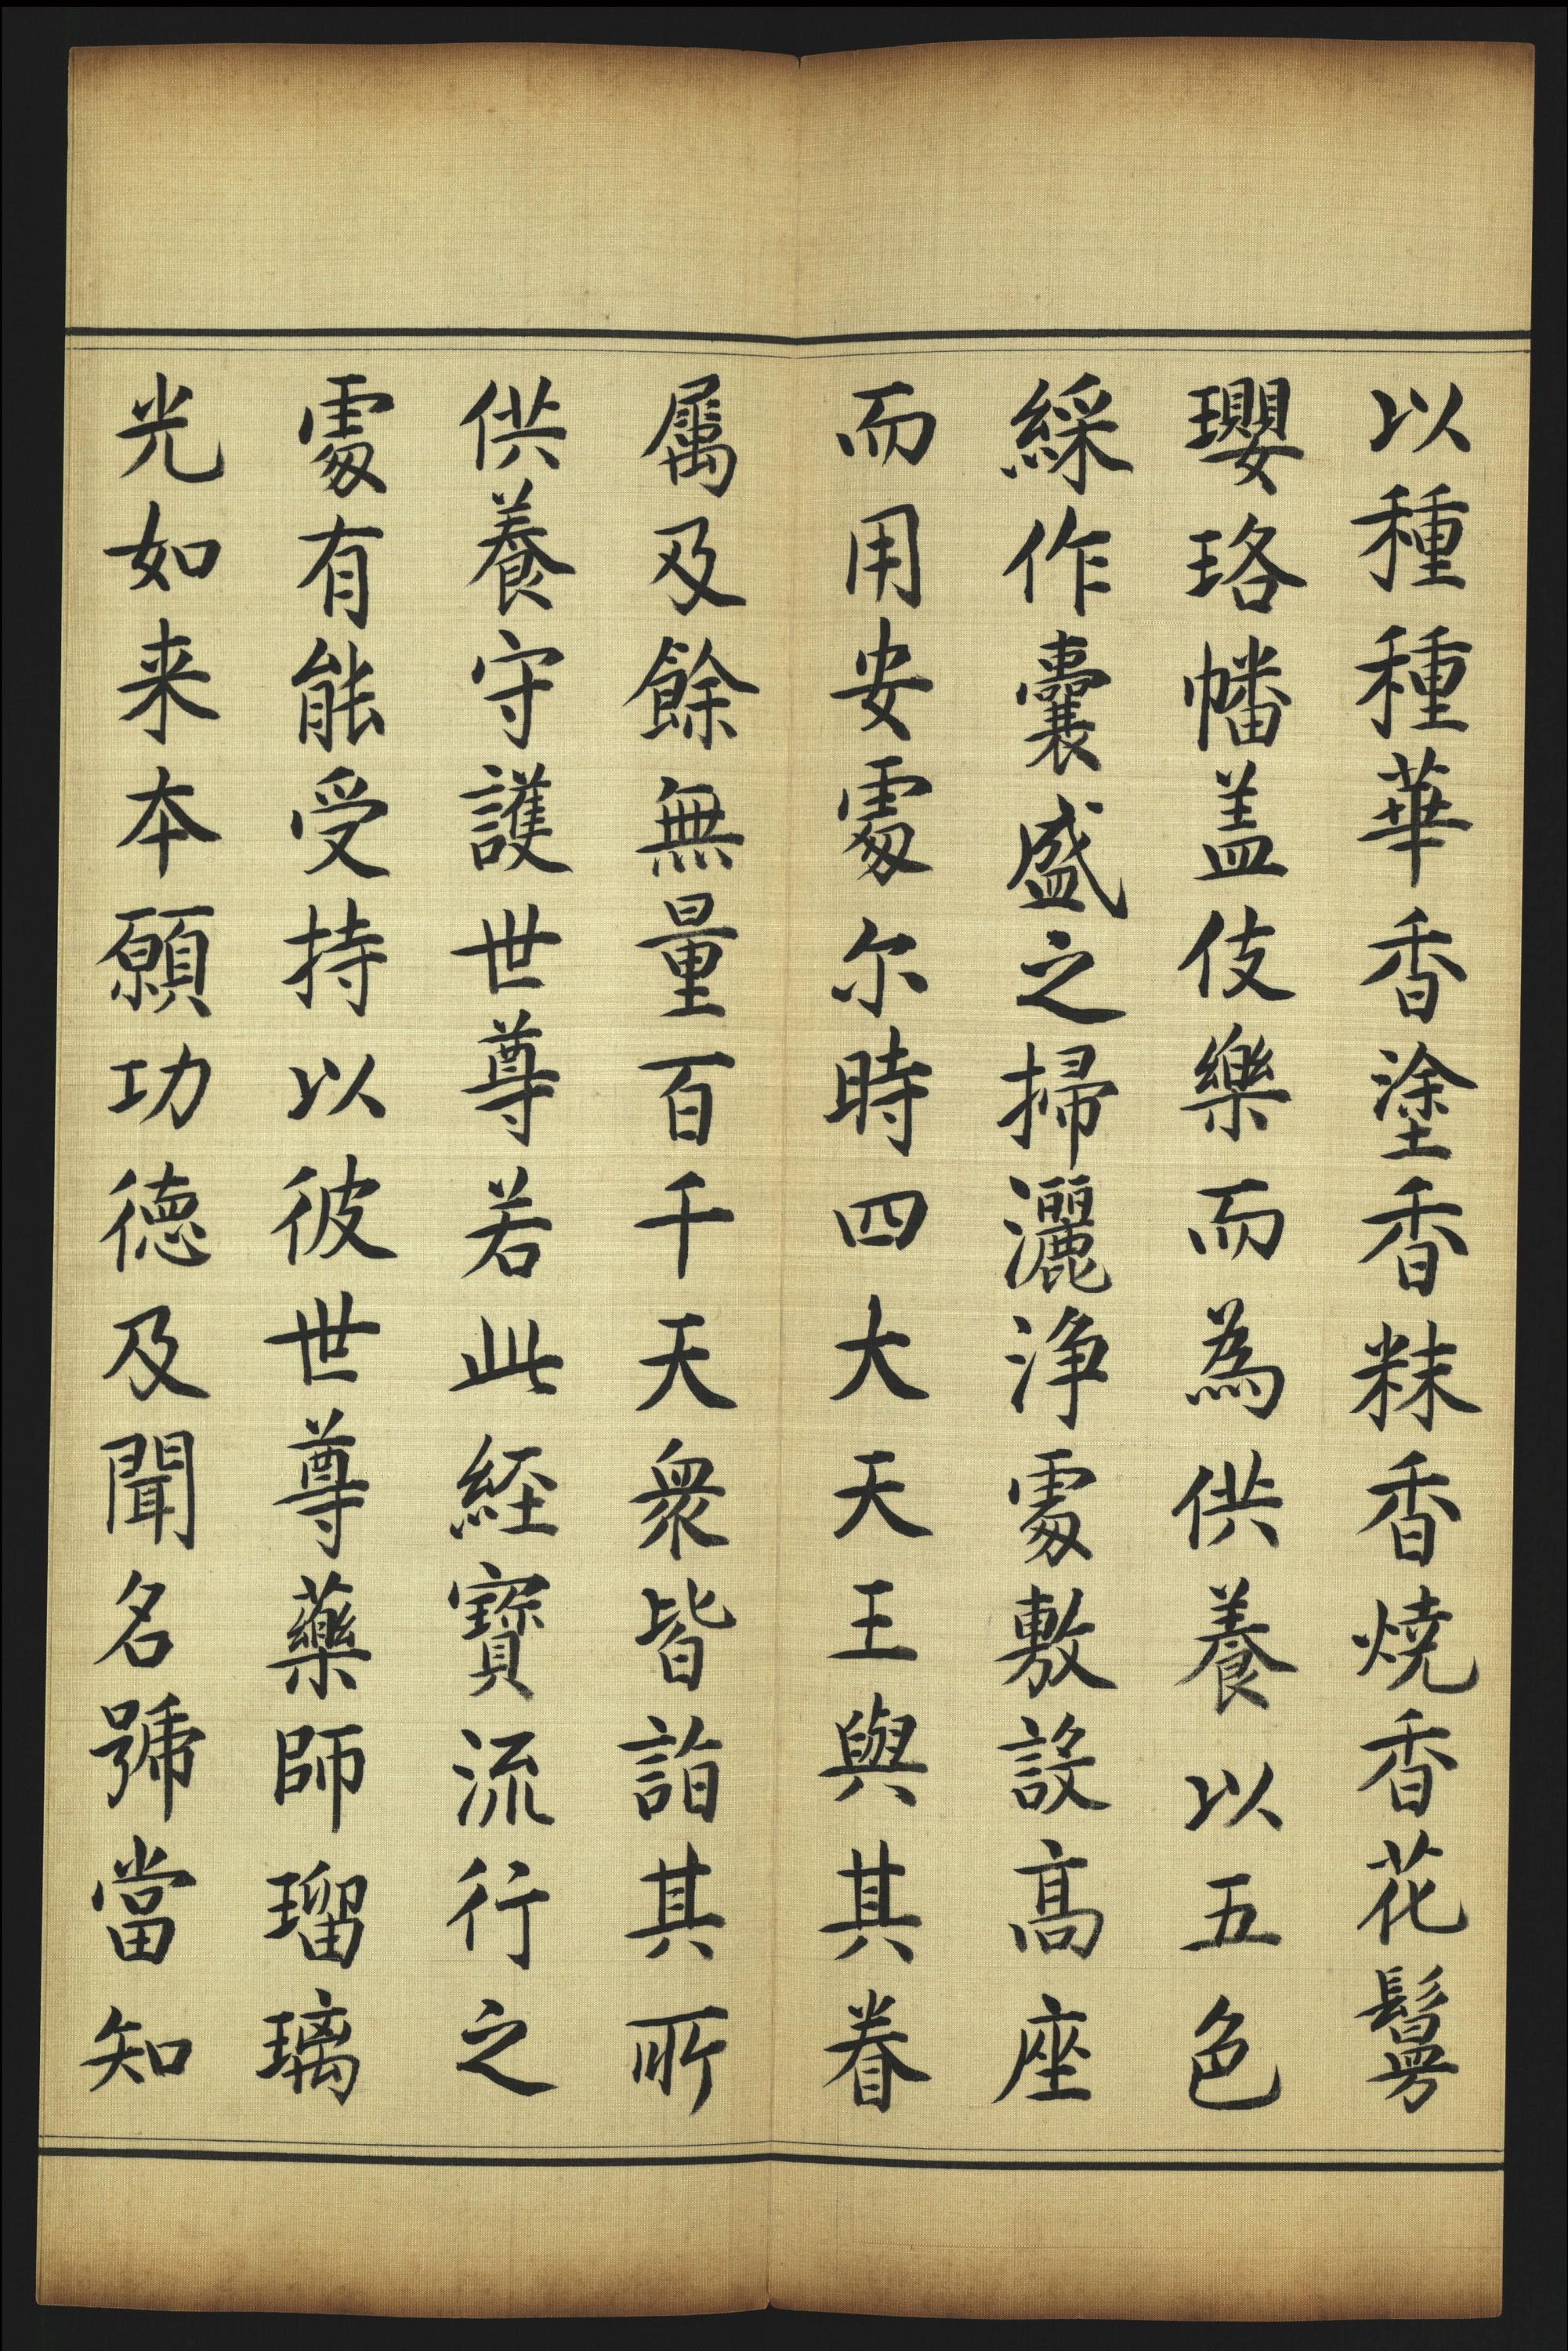 以種種華香塗香粖香燒香花鬘
瓔珞幡盖伎樂而為供養以五色
綵作囊盛之掃灑淨處敷設高座
而用安處尔時四大天王與其眷
屬及餘無量百千天衆皆詣其所
供養守護世尊若此經寶流行之
處有能受持以彼世尊藥師瑠璃
光如来本願功德及聞名號當知